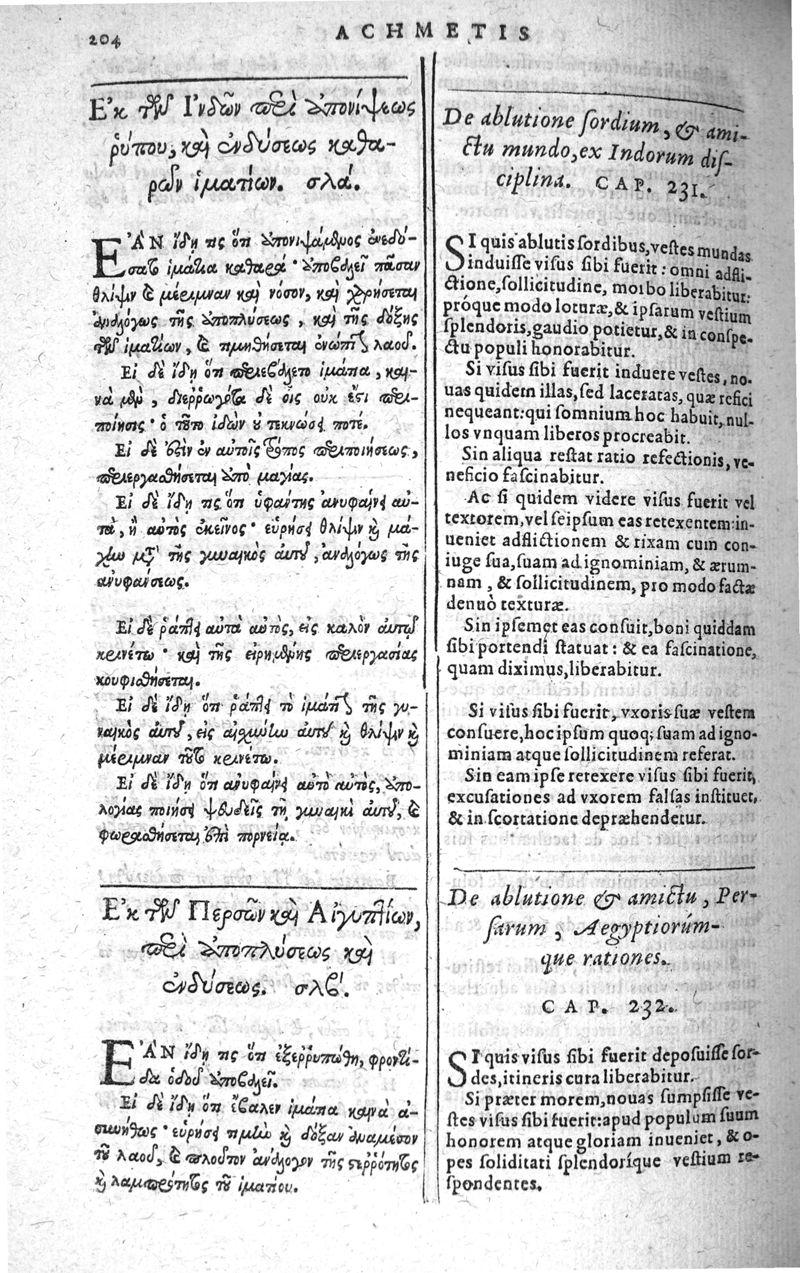 204
ACHMETIS
Ἐκ τῶν Ἰνδῶν περὶ ἀπονίψεως
ῥύπου, καὶ ἐνδύσεως καθα-
ρῶν ἱματίων. σλα΄.
ΕΑΝ ἴδῃ τις ὅτι ἀπονιψάμενος ἐνεδύ-
σατο ἱμάτια καθαρά· ἀποβαλεῖ πᾶσαν
θλίψιν & μέριμναν καὶ νόσον, καὶ χρήσεται
ἀναλόγως τῆς ἀποπλύσεως, καὶ τῆς δόξης
τῶν ἱματίων, & τιμηθήσεται ἐνώπιον λαοῦ.
Εἰ δὲ ἴδῃ ὅτι περιεβάλετο ἱμάτια, και-
νὰ μὲν, διερρωγότα δὲ οἷς οὐκ ἔστι περι-
ποίησις· ὁ τοῦτο ἰδὼν οὐ τεκνώσει ποτέ.
Εἰ δέ ἐστιν ἐν αὐτοῖς τρόπος περιποιήσεως,
περιεργασθήσεται ὑπὸ μαγίας.
Εἰ δὲ ἴδῃ τις ὅτι ὑφαντὴς ἀνυφαίνει αὐ-
τὰ, ἢ αὐτὸς ἐκεῖνος· εὑρήσει θλίψιν κὶ μά-
χην μετὰ τῆς γυναικὸς αὐτοῦ, ἀναλόγως τῆς
ἀνυφάνσεως.
Εἰ δὲ ῥάπτει αὐτὰ αὐτὸς, εἰς καλὸν αὐτῷ
κρινέτω· καὶ τῆς εἰρημένης περιεργασίας
κουφισθήσεται.
Εἰ δὲ ἴδῃ ὅτι ῥάπτει τὸ ἱμάτιον τῆς γυ-
ναικὸς αὐτοῦ, εἰς αἰσχύνην αὐτοῦ κὶ θλίψιν κὶ
μέριμναν τοῦτο κρινέτω.
Εἰ δὲ ἴδῃ ὅτι ἀνυφαίνει αὐτὸ αὐτὸς, ἀπο-
λογίας ποιήσει ψευδεῖς τῇ γυναικὶ αὐτοῦ, &
φωραθήσεται ἐπὶ πορνείᾳ.
Ἐκ τῶν Περσῶν καὶ Αἰγυπτίων,
περὶ ἀποπλύσεως καὶ
ἐνδύσεως. σλβ΄.
ΕΑΝ ἴδῃ τις ὅτι ἐξερρυπώθη, φροντί-
δα ὁδοῦ ἀποβαλεῖ.
Εἰ δὲ ἴδῃ ὅτι ἔβαλεν ἱμάτια καινὰ ἀ-
συνήθως· εὑρήσει τιμὴν κὶ δόξαν ἀναμέσον
τοῦ λαοῦ, & πλοῦτον ἀνάλογον τῆς στερρότητος
κὶ λαμπρότητος τοῦ ἱματίου.
De ablutione sordium, & ami-
ctu mundo, ex Indorum dis-
ciplina. CAP. 231.
SI quis ablutis sordibus, vestes mundas
induisse visus sibi fuerit: omni adfli-
ctione, sollicitudine, morbo liberabitur:
próque modo loturæ, & ipsarum vestium
splendoris, gaudio potietur, & in conspe-
ctu populi honorabitur.
Si visus sibi fuerit induere vestes, no-
uas quidem illas, sed laceratas, quæ refici
nequeant: qui somnium hoc habuit, nul-
los vnquam liberos procreabit.
Sin aliqua restat ratio refectionis, ve-
neficio fascinabitur.
Ac si quidem videre visus fuerit vel
textorem, vel seipsum eas retexentem: in-
ueniet adflictionem & rixam cum con-
iuge sua, suam ad ignominiam, & ærum-
nam, & sollicitudinem, pro modo factæ
denuò texturæ.
Sin ipsemet eas consuit, boni quiddam
sibi portendi statuat: & ea fascinatione,
quam diximus, liberabitur.
Si visus sibi fuerit, vxoris suæ vestem
consuere, hoc ipsum quoq; suam ad igno-
miniam atque sollicitudinem referat.
Sin eam ipse retexere visus sibi fuerit,
excusationes ad vxorem falsas instituet,
& in scortatione depræhendetur.
De ablutione & amictu, Per-
sarum, Aegyptiorúm-
que rationes.
CAP. 232.
SI quis visus sibi fuerit deposuisse sor-
des, itineris cura liberabitur.
Si præter morem, nouas sumpsisse ve-
stes visus sibi fuerit: apud populum suum
honorem atque gloriam inueniet, & o-
pes soliditati splendorique vestium re-
spondentes.